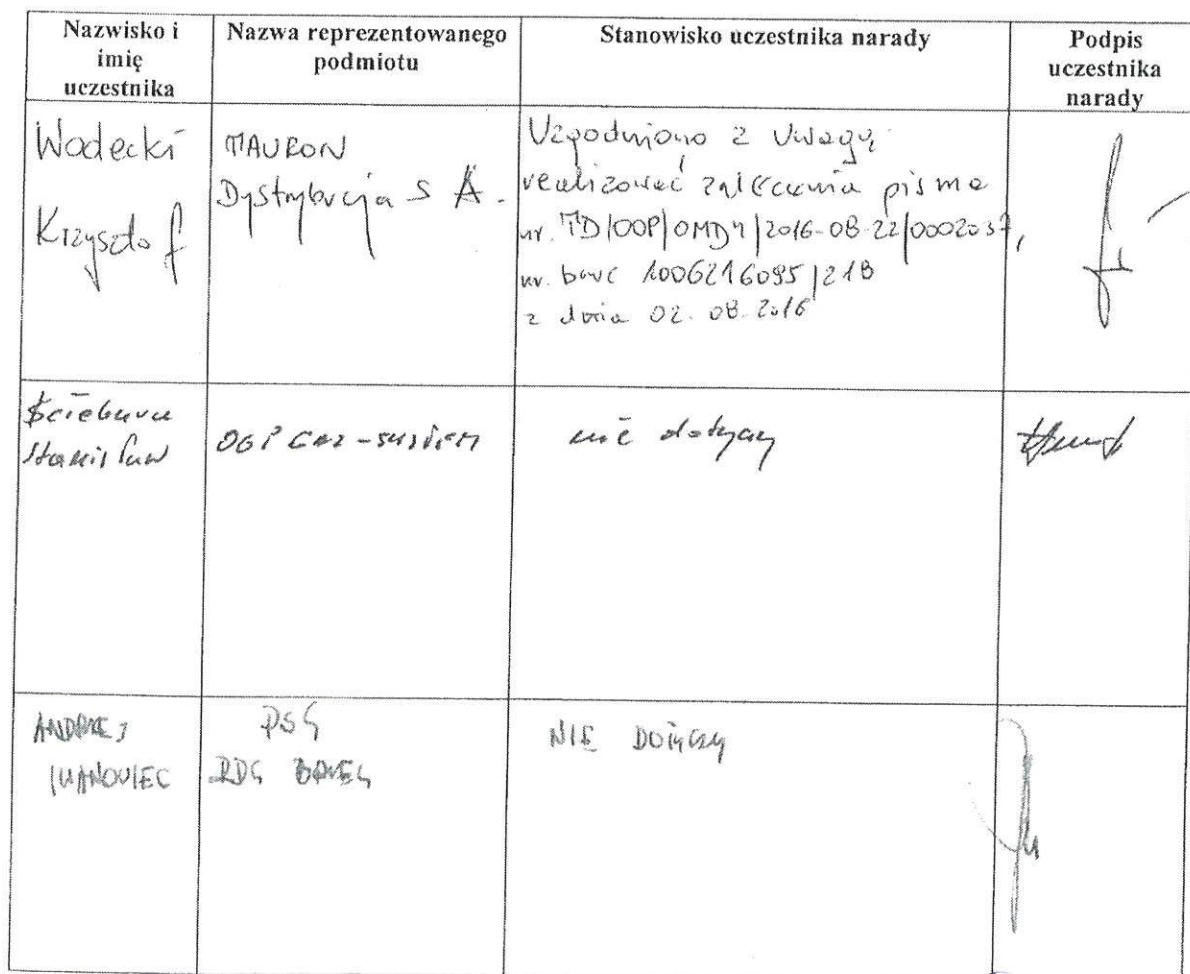 Nazwisko i
imię
uczestnika
Nazwa reprezentowanego
podmiotu
Stanowisko uczestnika narady
Podpis
uczestnika
narady
Wodecki
Krzysztof
TAURON
Dystrybucja S A.
Uzgodniono z uwagą
realizować zalecenia pisma
nr. TD/OOP/OMD4/2016-08-22/0002037,
nr. barc 1006216095/21B
z dnia 02.08.2016
Stanisław
OGP GAZ-SYSTEM
nie dotyczy
ANDRZEJ
IWANOWIEC
PSG
RDG BRZEG
NIE DOTYCZY